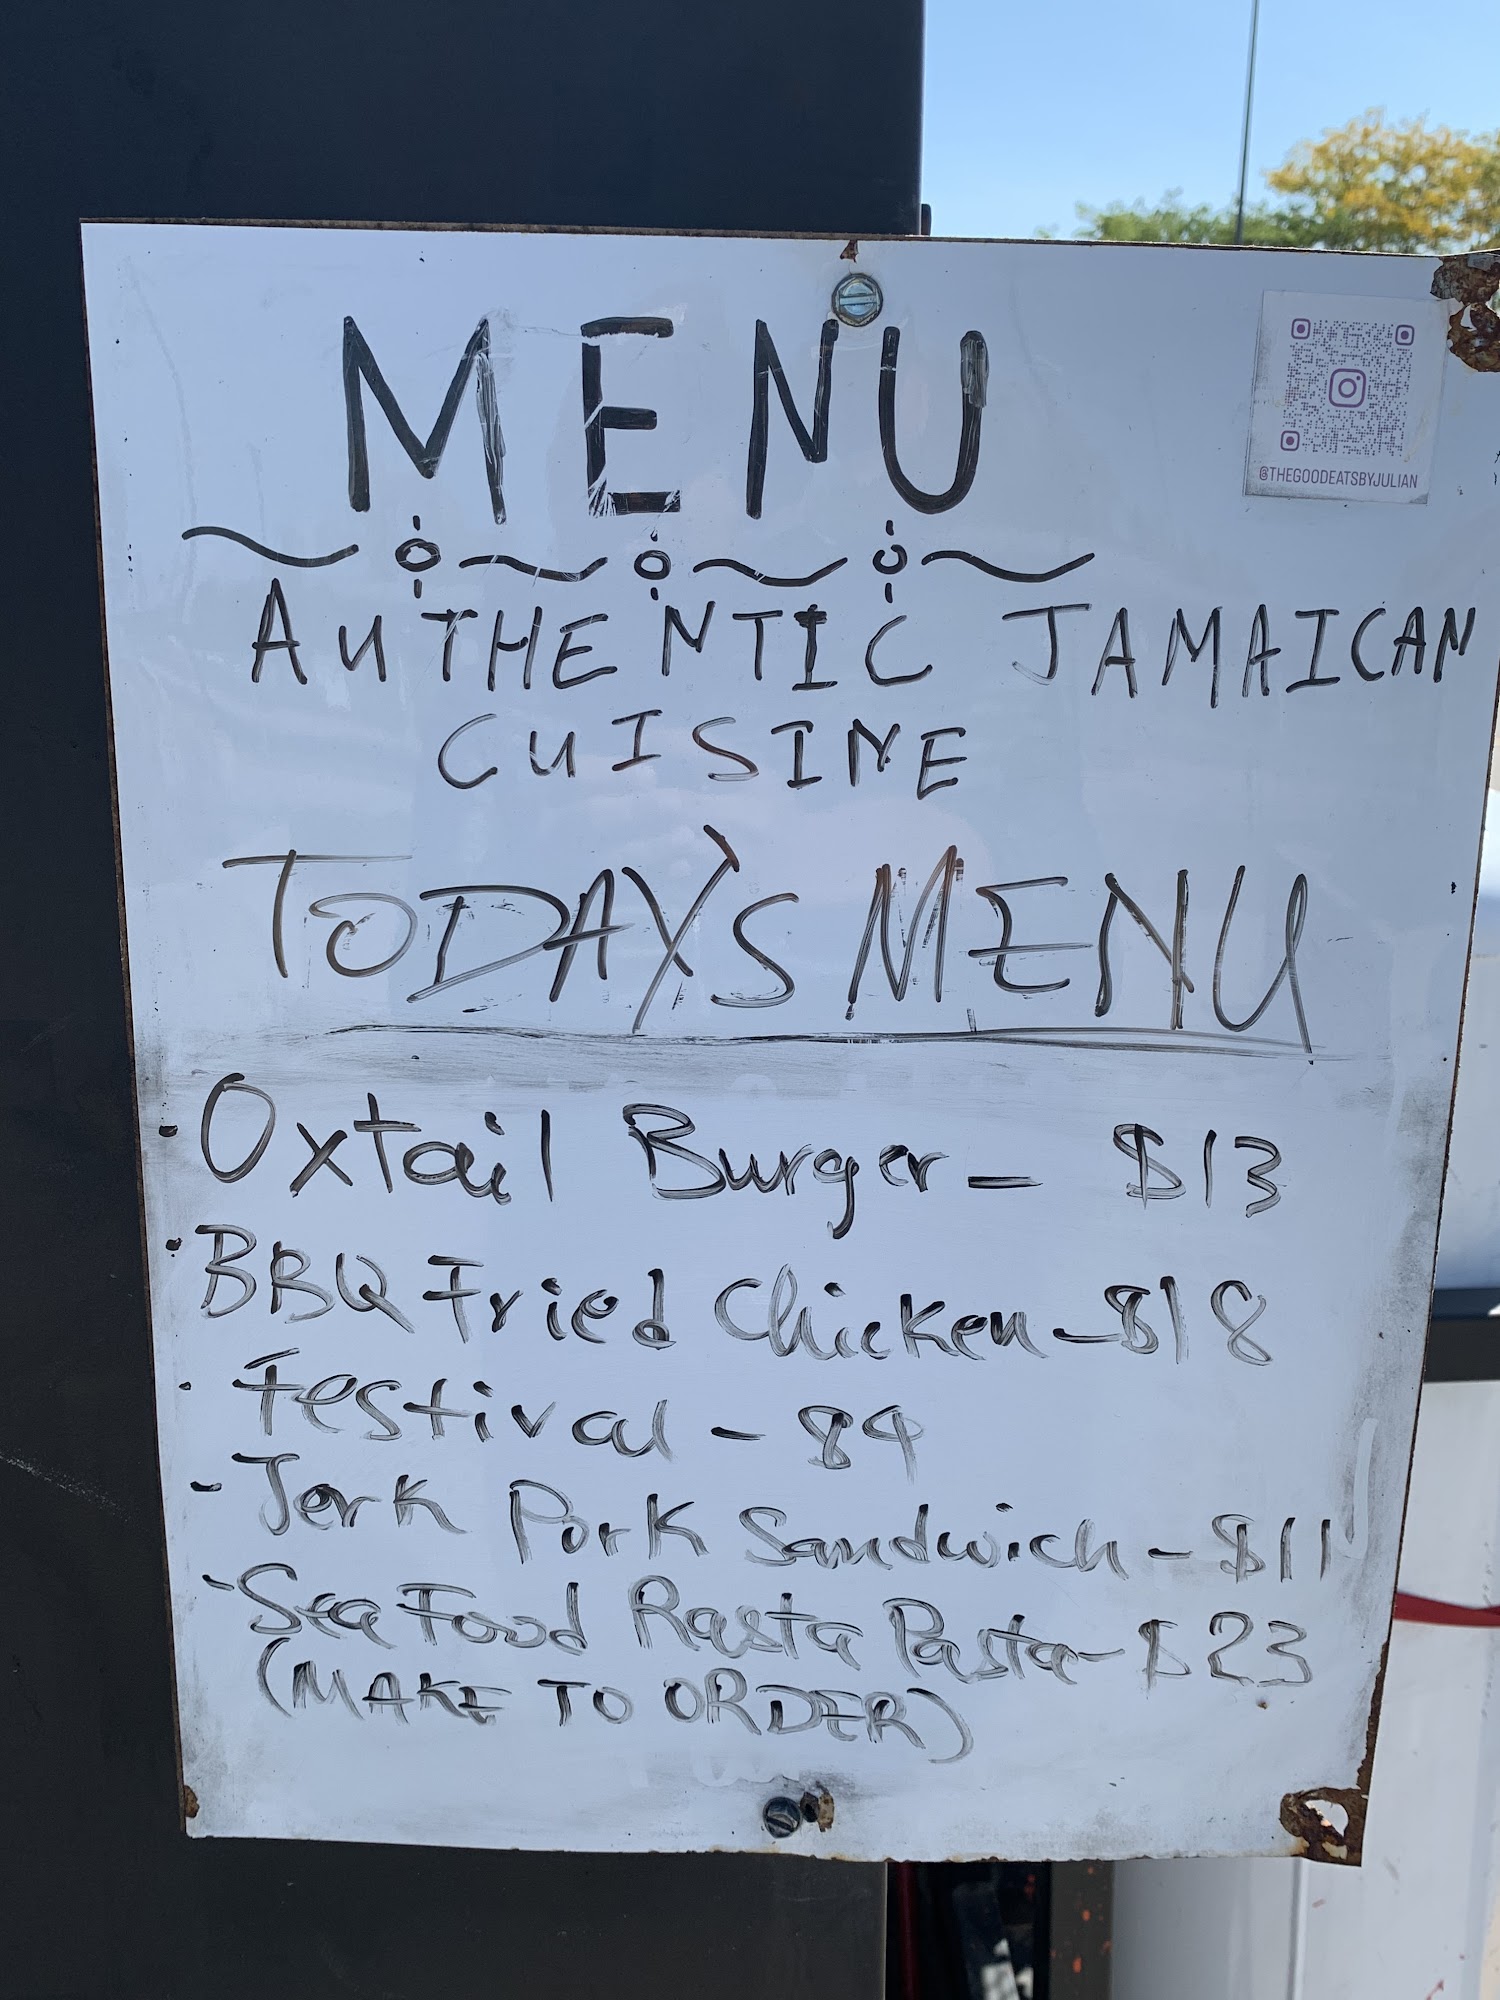 MENU
@THEGOODEATSBYJULIAN
AUTHENTIC JAMAICAN
CUISINE
TODAY'S MENU
· Oxtail Burger - $13
· BBQ Fried Chicken - $18
· Festival - $4
- Jerk Pork Sandwich - $11
- Sea Food Rasta Pasta - $23
(MAKE TO ORDER)